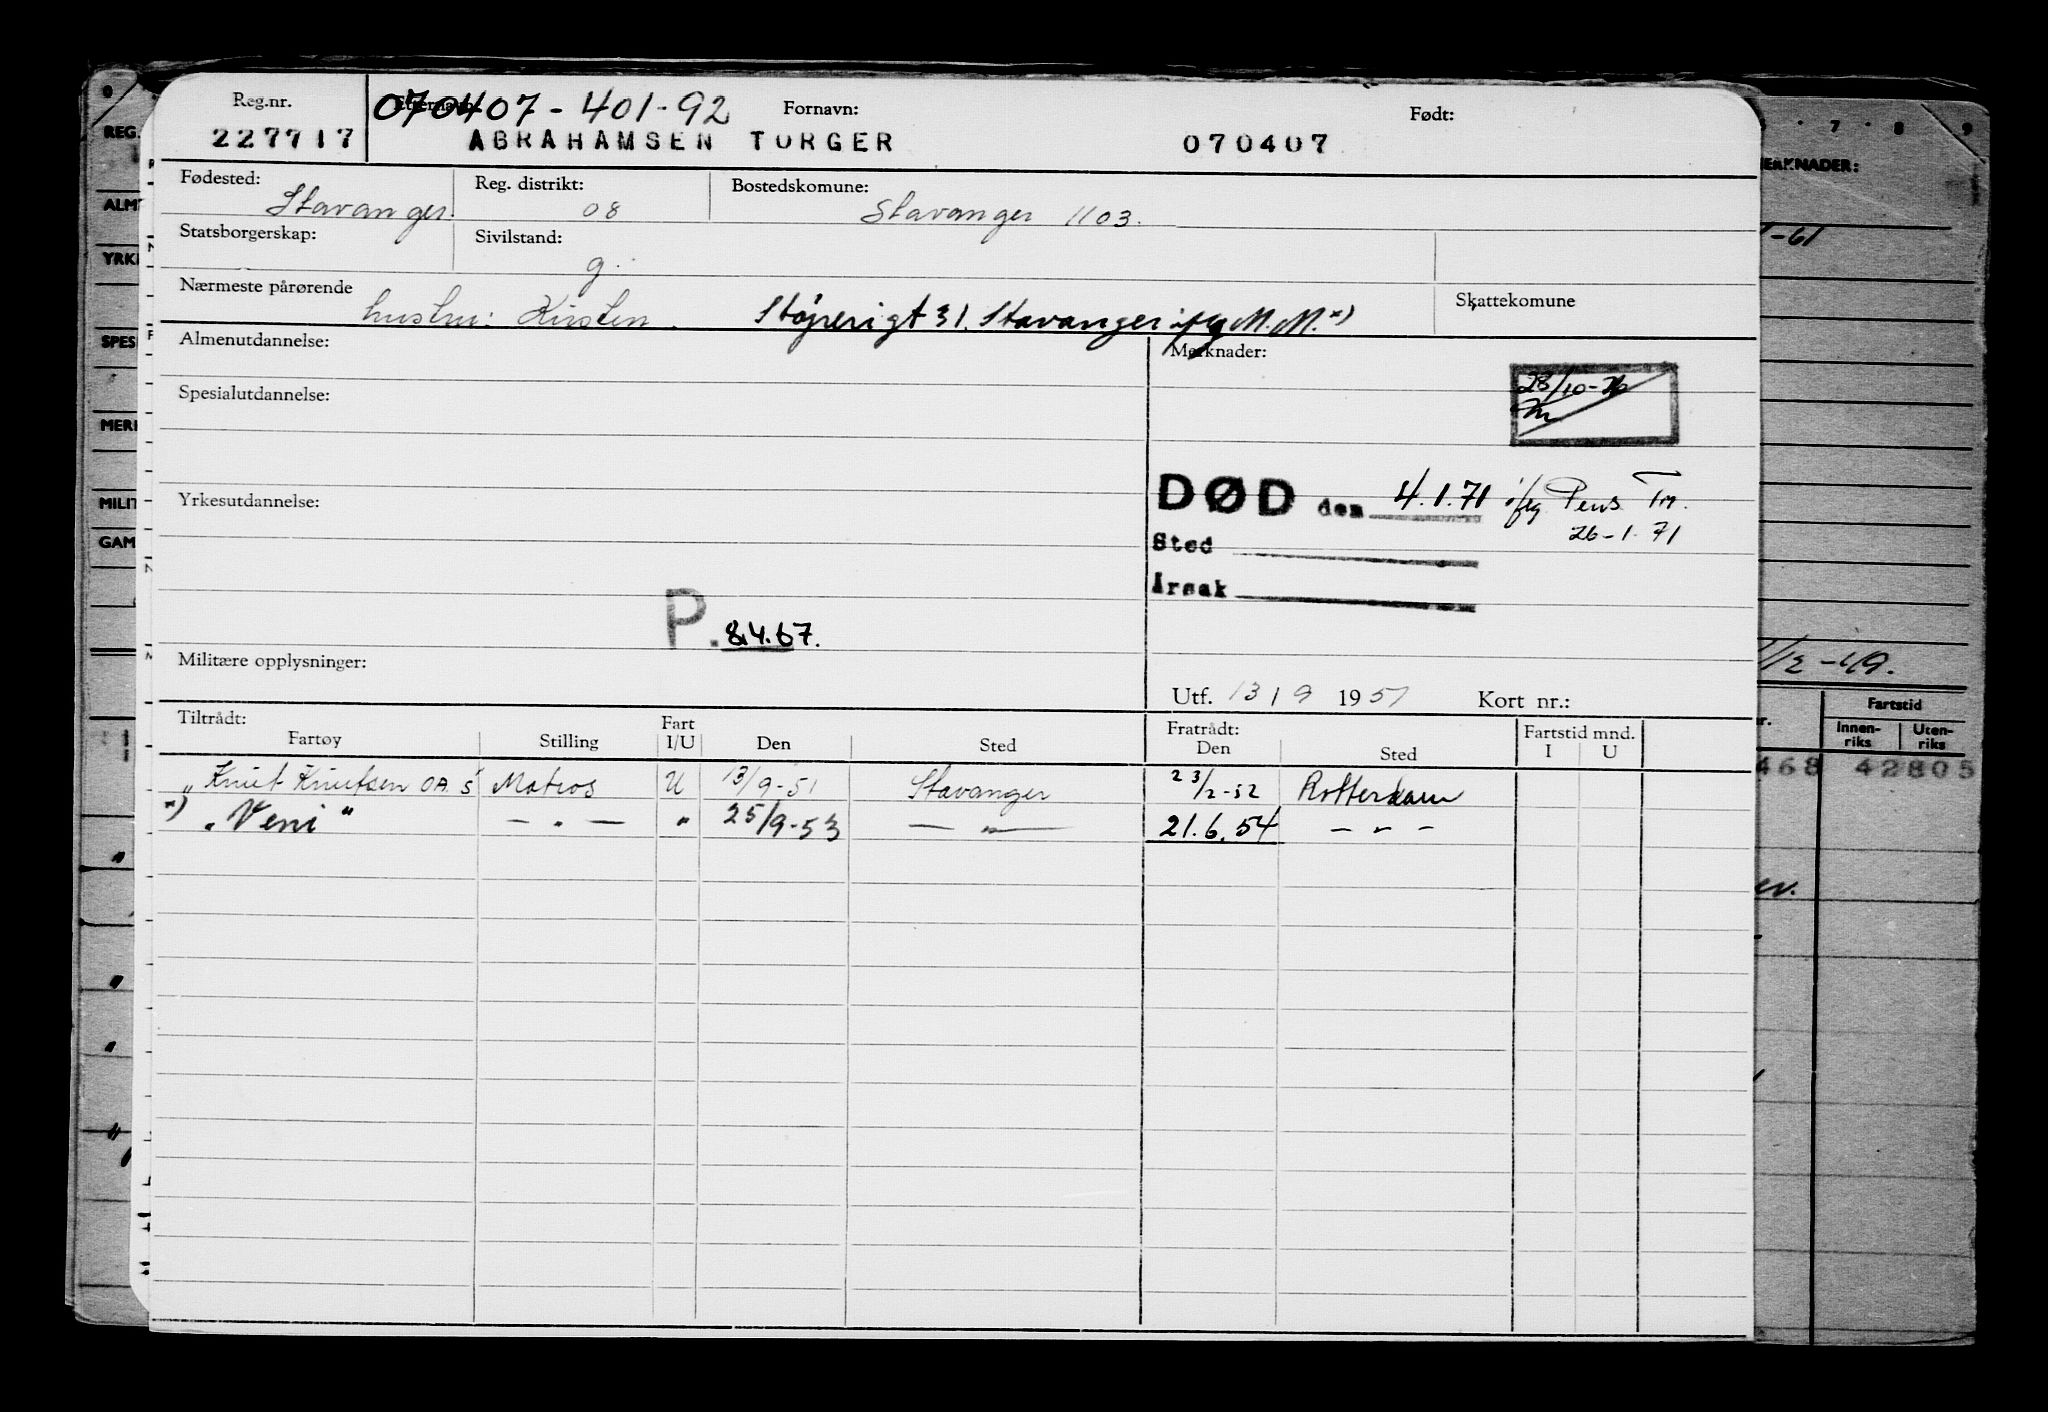 Reg.nr. 070407-401-92 Fornavn: Født:
227717 ABRAHAMSEN TORGER 070407
Fødested: Reg. distrikt: Bostedskomune:
Stavanger. 08 Stavanger 1103.
Statsborgerskap: Sivilstand:
g.
Nærmeste pårørende Skattekomune
hustru: Kirsten. 31. Stavanger ifg M.M.*)
Almenutdannelse: Merknader:
28/10-
Spesialutdannelse:
DØD den 4.1.71 ifg Pens Tr.
26-1-71
Yrkesutdannelse:
Sted
Årsak
P. 8.4.67.
Militære opplysninger:
Utf. 13/9 1951 Kort nr.:
Tiltrådt: Fart Fratrådt: Fartstid mnd.
Fartøy Stilling I/U Den Sted Den Sted I U
"Knut Knutsen OAS" Matros U 13/9-51 Stavanger 23/2-52 Rotterdam
*) "Veni" — " — " 25/9-53 — " — 21.6.54 — " —
REG.
ALM
YRK
SPES
MERK
MILIT
GAM
6 · 7 · 8 9
MERKNADER:
-61
/12-49.
Fartstid
Innen-
riks
Uten-
riks
468 42805